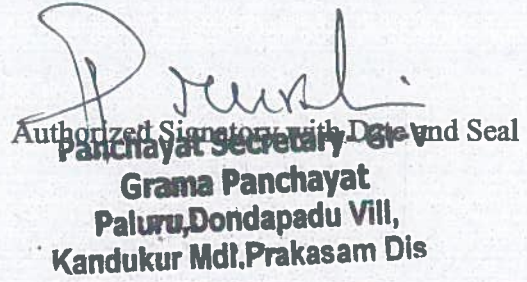 Authorized Signatory with Date and Seal
Panchayat Secretary Gr-V
Grama Panchayat
Paluru,Dondapadu Vill,
Kandukur Mdl.Prakasam Dis